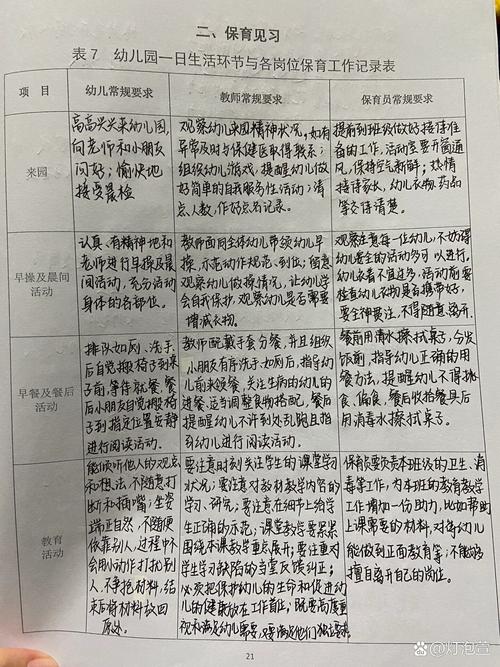 二、保育见习
表7 幼儿园一日生活环节与各岗位保育工作记录表
项 目
幼儿常规要求
教师常规要求
保育员常规要求
来园
高高兴兴来幼儿园,
向老师和小朋友
问好;愉快地
接受晨检
观察幼儿来园精神状况,如有
异常及时与保健医取得联系;
组织幼儿游戏,提醒幼儿做
好简单的自我服务性活动;清
点人数,作好点名记录。
提前到班级做好接待准
备的工作,活动室要开窗通
风,保持空气新鲜;热情
接待家长,幼儿衣物、药品
等交待清楚。
早操及晨间
活动
认真、有精神地和
老师进行早操及晨
间活动,充分活动
身体的各部位。
教师面向全体幼儿带领幼儿早
操,示范动作规范、到位;留意
观察幼儿做操情况,让幼儿学
会自我保护,观察幼儿是否需要
增减衣物。
观察注意每一位幼儿,不妨碍
幼儿安全的活动多可以进行。
幼儿衣着不宜过多,活动前要
检查幼儿衣物具携带好,
要全神贯注,不得随意离开。
早餐及餐后
活动
排队如厕、洗手,
后自觉搬椅子到桌
子前,等待就餐。餐
后小朋友自觉搬椅
子到指定位置安静
进行阅读活动。
教师配戴手套分餐,并且组织
小朋友有序洗手、如厕后,指导幼
儿前来领餐,关注生病的幼儿的
进餐、适当调整食物搭配。餐后
提醒幼儿不许到处乱跑且指
引幼儿进行阅读活动。
餐前用清水擦拭桌子,分发
饭前,指导幼儿正确的用
餐方法,提醒幼儿不得挑
食、偏食。餐后收拾餐具后
用消毒水擦拭桌子。
教育
活动
能倾听他人的观点
和想法,不随意打
断和插嘴;坐姿
端正自然,不随便
依靠别人,过程中不
会用小动作打扰别
人。不争抢材料,结
束后将材料放回
原处。
要注意时刻关注学生的课堂学习
状况;要注意对教材教学内容的
学习、研究;要注意在细节上给学
生正确的示范;课堂教学要紧紧
围绕本课教学重点展开;要注重对
学生学习缺陷的当堂反馈纠正;
必须把保护幼儿的生命和促进幼
儿的健康放在工作首位,既要高度重
视和满足幼儿需要,又要满足他们独立要求
保育员要负责本班级的卫生、消
毒等工作,为本班的教育教学
工作增加一份助力,比如帮助
上课需要的材料,对待幼儿
能做到正面教育等;不能够
擅自离开自己的岗位。
21
百家号/灯泡萱